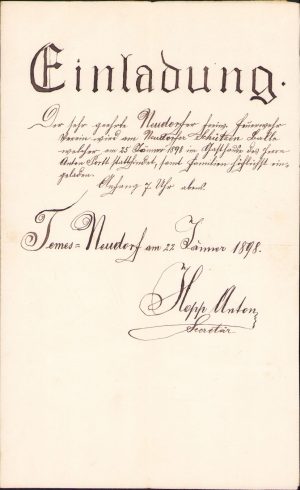 Einladung.
Der sehr geehrte Neudorfer freiw. Feuerwehr
Verein wird am Neudorfer Schützen Balle
welcher am 25 Jänner 1898 im Gasthause des Herrn
Anton stattfindet, samt Familien höflichst ein-
geladen.
Anfang 7 Uhr abends.
Temes=Neudorf am 22 Jänner 1898.
Hopp Anton
Secretär